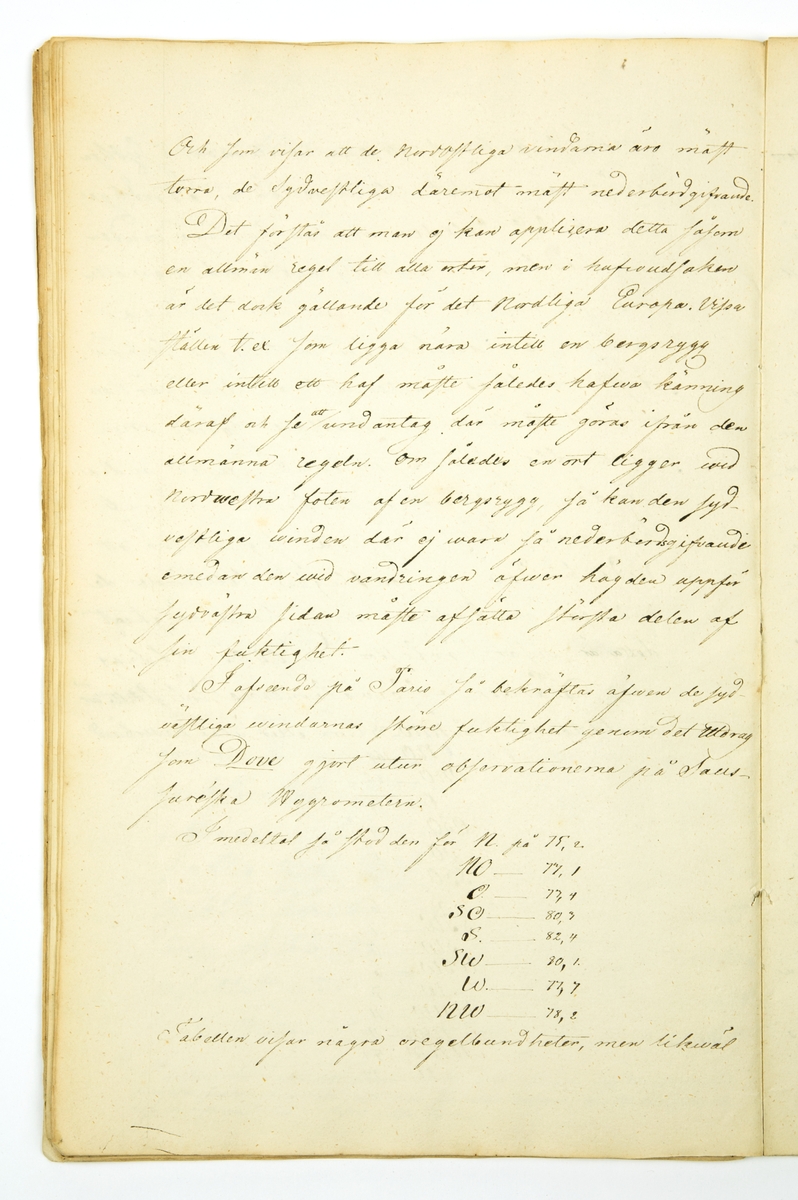 Och som visar att de Nordostliga vindarna äro mäst
torra, de Sydvestliga däremot mäst nederbördgifvande.
Det förstås att man ej kan applicera detta såsom
en allmän regel till alla orter, men i hufvudsaken
är det dock gällande för det Nordliga Europa. Vissa
ställen t. ex som ligga nära intill en bergsrygg
eller intill ett haf måste således hafwa känning
däraf och se att undantag där måste göras ifrån den
allmänna regeln. Om således en ort ligger wid
Nordwestra foten af en bergsrygg, så kan den syd-
vestliga winden där ej wara så nederbördsgifvande
emedan den wid vandringen öfwer högden uppför
sydvästra sidan måste afsätta största delen af
sin fuktighet.
I afseende på Paris så bekräftas äfwen de syd-
västliga windarnas större fuktighet genom det Utdrag
som Dove gjort utur observationerna på Saus-
sureska Hygrometern.
I medeltal så stod den för N. på 75, 2.
NO — 77, 1
O. — 77, 4
SO — 80, 3
S. — 82, 4
SW — 80, 1.
W. — 77, 7
NW — 78, 2
Tabellen visar några oregelbundheter, men likwäl